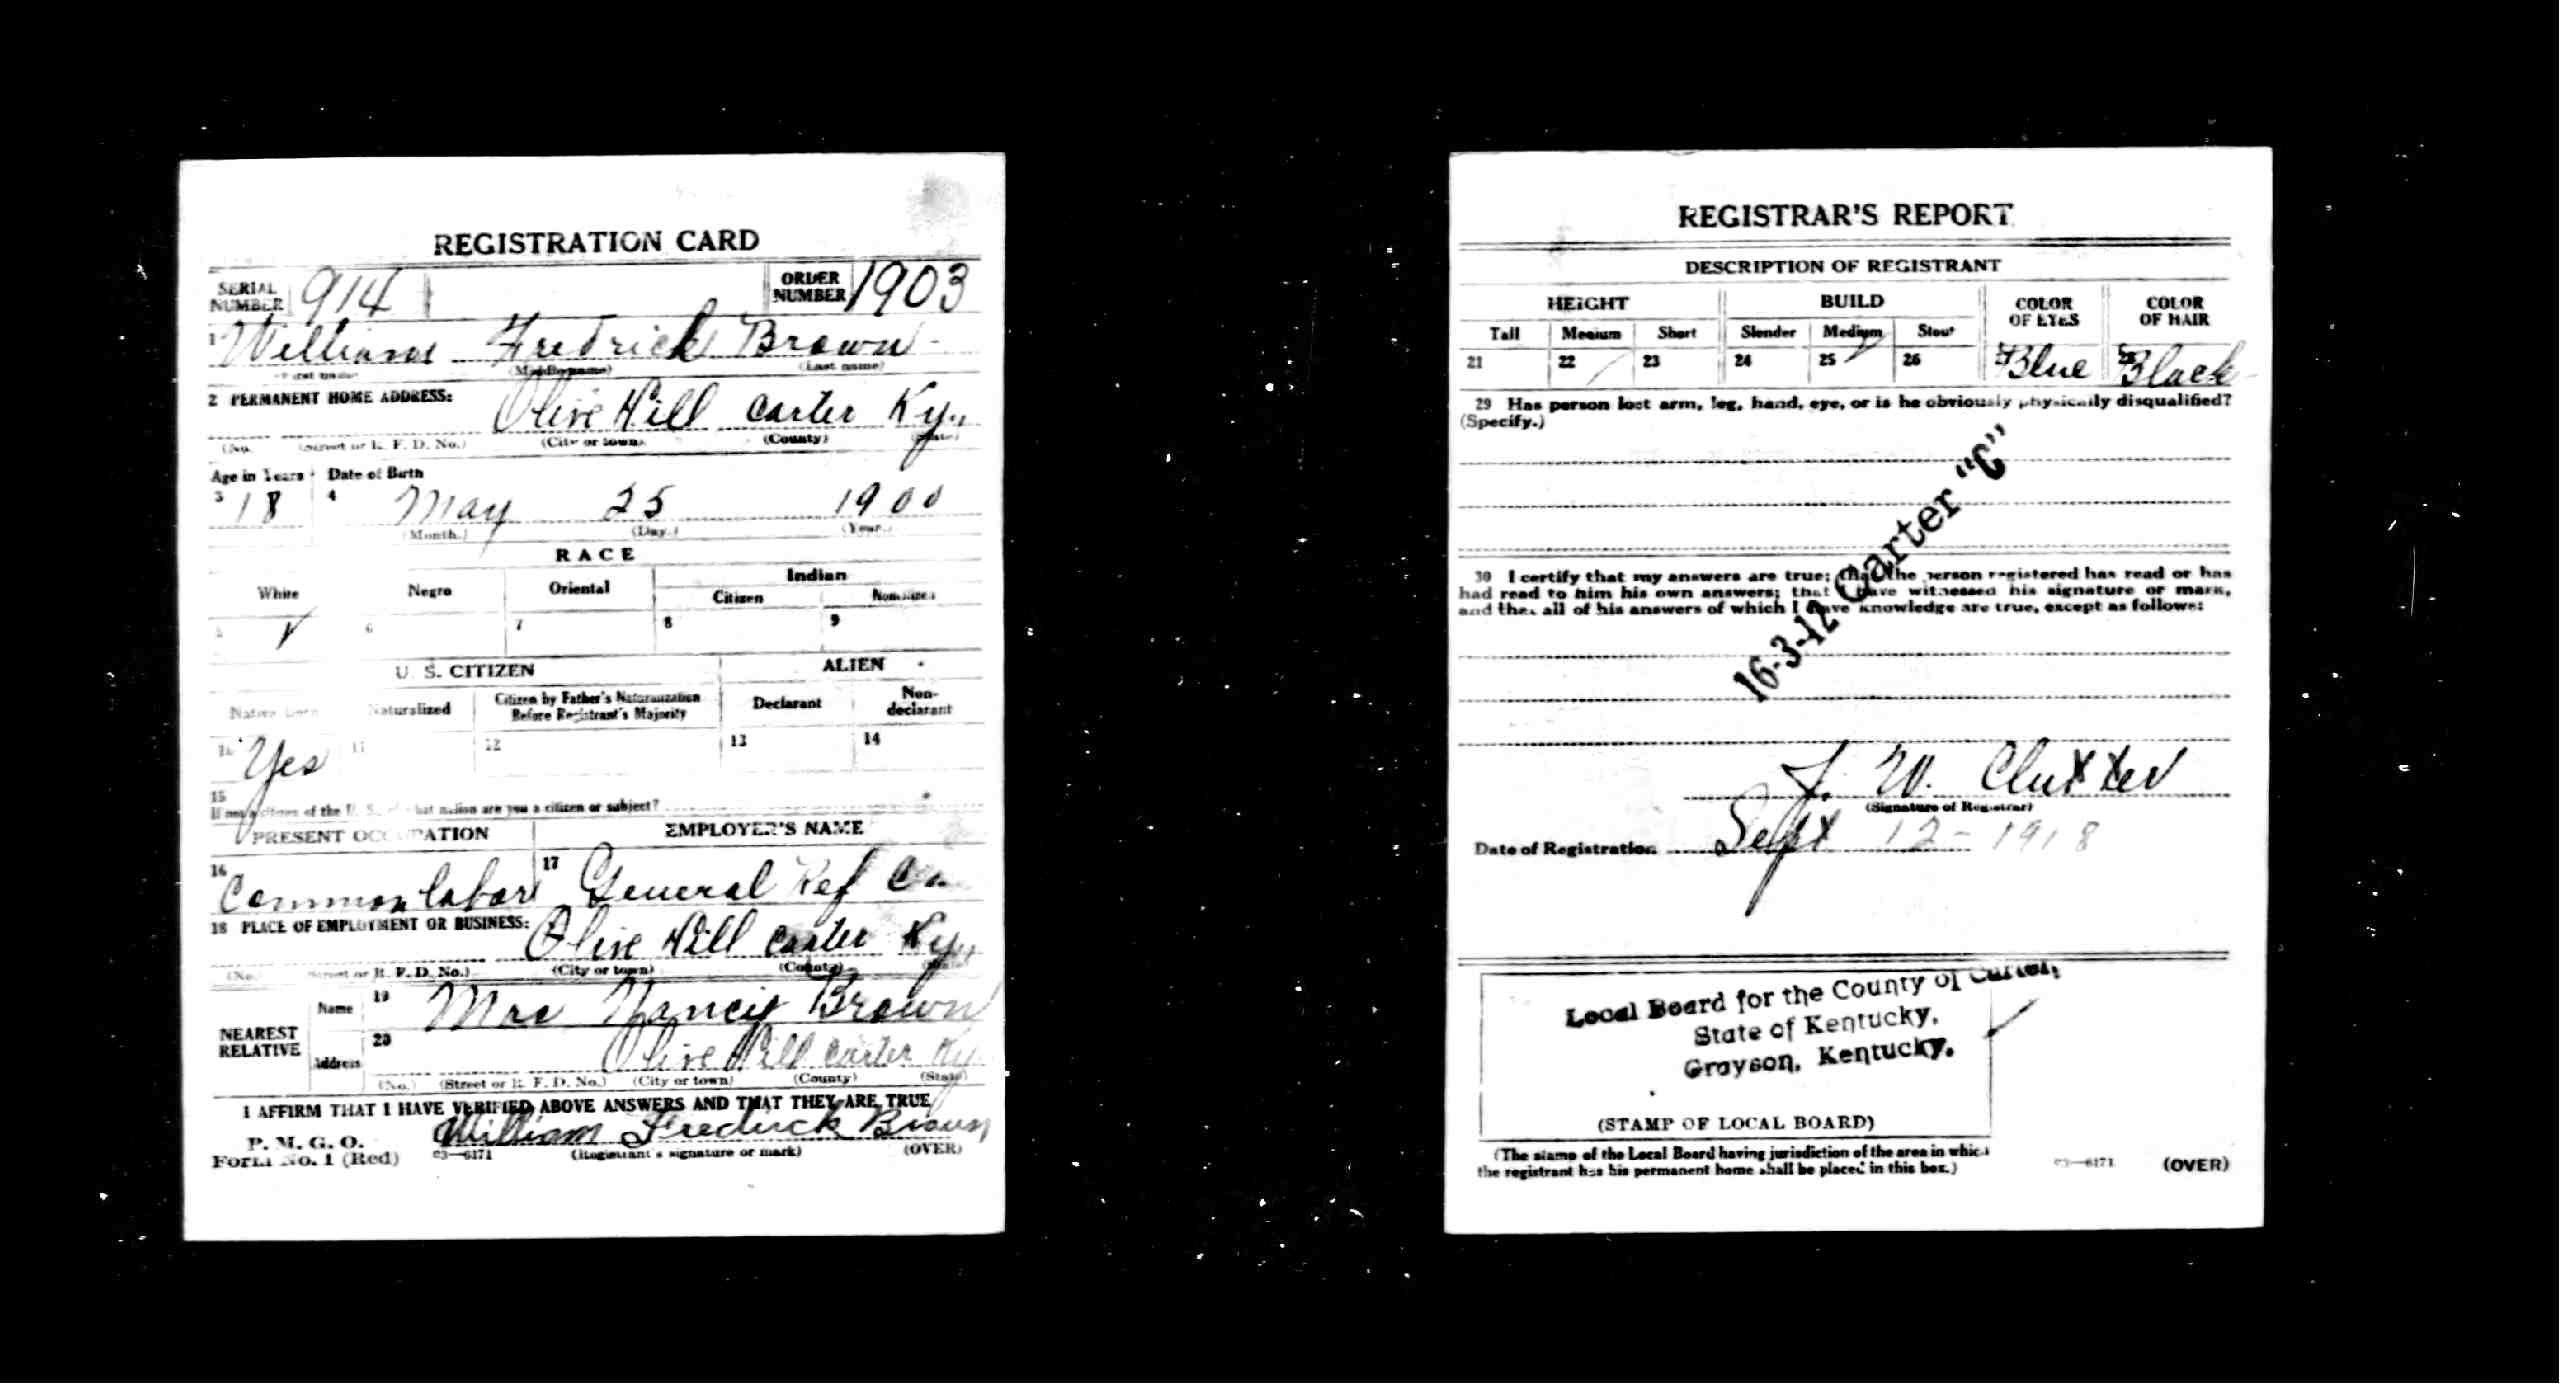 REGISTRATION CARD
SERIAL NUMBER 914 ORDER NUMBER 1903
1 William Fredrick Brown
(First name) (Middle name) (Last name)
2 PERMANENT HOME ADDRESS:
Olive Hill Carter Ky.
(No. (Street or R. F. D. No.) (City or town) (County) (State)
Age in Years Date of Birth
3 18 4 May 25 1900
(Month.) (Day.) (Year.)
RACE
White Negro Oriental Indian
Citizen Noncitizen
5 6 7 8 9
U. S. CITIZEN ALIEN
Native Born Naturalized Citizen by Father's Naturalization Before Registrant's Majority Declarant Non-declarant
10 Yes 11 12 13 14
15
If not a citizen of the U. S., of what nation are you a citizen or subject?
PRESENT OCCUPATION EMPLOYER'S NAME
16 Common labor 17 General Ref Co
18 PLACE OF EMPLOYMENT OR BUSINESS:
Olive Hill Carter Ky.
(No.) (Street or R. F. D. No.) (City or town) (County) (State)
NEAREST RELATIVE
Name 19 Mrs Brown
Address 20 Olive Hill Carter Ky.
(No.) (Street or R. F. D. No.) (City or town) (County) (State)
I AFFIRM THAT I HAVE VERIFIED ABOVE ANSWERS AND THAT THEY ARE TRUE
P. M. G. O.
Form No. 1 (Red) 03—6171
William Fredrick Brown
(Registrant's signature or mark) (OVER)
REGISTRAR'S REPORT
DESCRIPTION OF REGISTRANT
HEIGHT BUILD COLOR OF EYES COLOR OF HAIR
Tall Medium Short Slender Medium Stout
21 22 23 24 25 26 27 Blue 28 Black
29 Has person lost arm, leg, hand, eye, or is he obviously physically disqualified?
(Specify.)
16-3-12 Carter "C"
30 I certify that my answers are true; that the person registered has read or has
had read to him his own answers; that I have witnessed his signature or mark,
and that all of his answers of which I have knowledge are true, except as follows:
J. W. Clutter
(Signature of Registrar)
Date of Registration Sept 12 - 1918
Local Board for the County of Carter,
State of Kentucky,
Grayson, Kentucky.
(STAMP OF LOCAL BOARD)
(The stamp of the Local Board having jurisdiction of the area in which
the registrant has his permanent home shall be placed in this box.)
03—6171 (OVER)